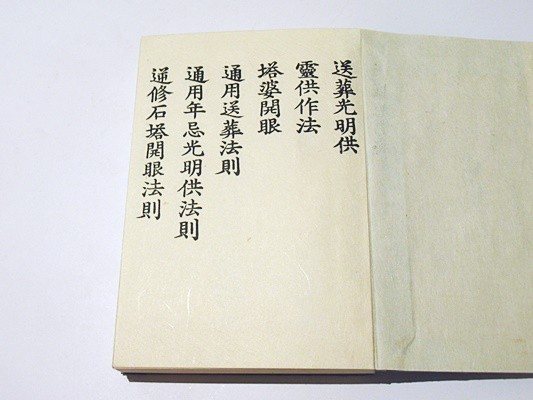 送葬光明供
靈供作法
塔婆開眼
通用送葬法則
通用年忌光明供法則
逆修石塔開眼法則